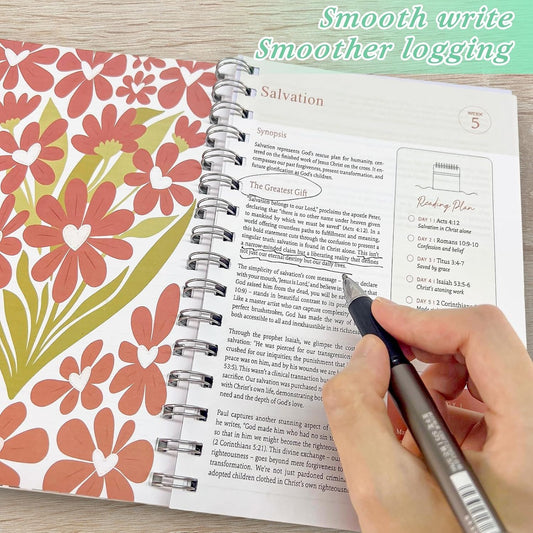 Smooth write
Smoother logging
Salvation
WEEK
5
Synopsis
Salvation represents God's rescue plan for humanity, cen-
tered on the finished work of Jesus Christ on the cross. It en-
compasses our past forgiveness, present transformation, and
future glorification as God's children.
The Greatest Gift
"Salvation belongs to our Lord," proclaims the apostle Peter,
declaring that "there is no other name under heaven given
to mankind by which we must be saved" (Acts 4:12). In a
world offering countless paths to fulfillment and meaning,
this bold statement cuts through the confusion to present a
singular truth: salvation is found in Christ alone. This isn't
a narrow-minded claim but a liberating reality that defines
not just our eternal destiny but our daily lives.
The simplicity of salvation's core message
declare
with your mouth, 'Jesus is Lord,' and believe in
God raised him from the dead, you will
stands in beautiful contrast to its prof
Like a master artist who can capture complexity
perfect brushstrokes, God has made the way of
both accessible to all and inexhaustible in its richness
Through the prophet Isaiah, we glimpse the co
salvation: "He was pierced for our transgression
crushed for our iniquities; the punishment that
peace was on him, and by his wounds we are h
53:5). This wasn't a clinical transaction but
sacrifice. Our salvation was purchased n
with Christ's own life, demonstrating bot
need and the depth of God's love.
Paul captures another stunning aspect of
he writes, "God made him who had no sin to
so that in him we might become the righteousn
(2 Corinthians 5:21). This divine exchange – our
righteousness – goes beyond mere forgiveness to
transformation. We're not just pardoned criminal
adopted children clothed in Christ's own righteousn
Reading Plan
DAY 1 | Acts 4:12
Salvation in Christ alone
DAY 2 | Romans 10:9-10
Confession and belief
DAY 3 | Titus 3:4-7
Saved by grace
DAY 4 | Isaiah 53:5-6
Christ's atoning work
DAY 5 | 2 Corinthians